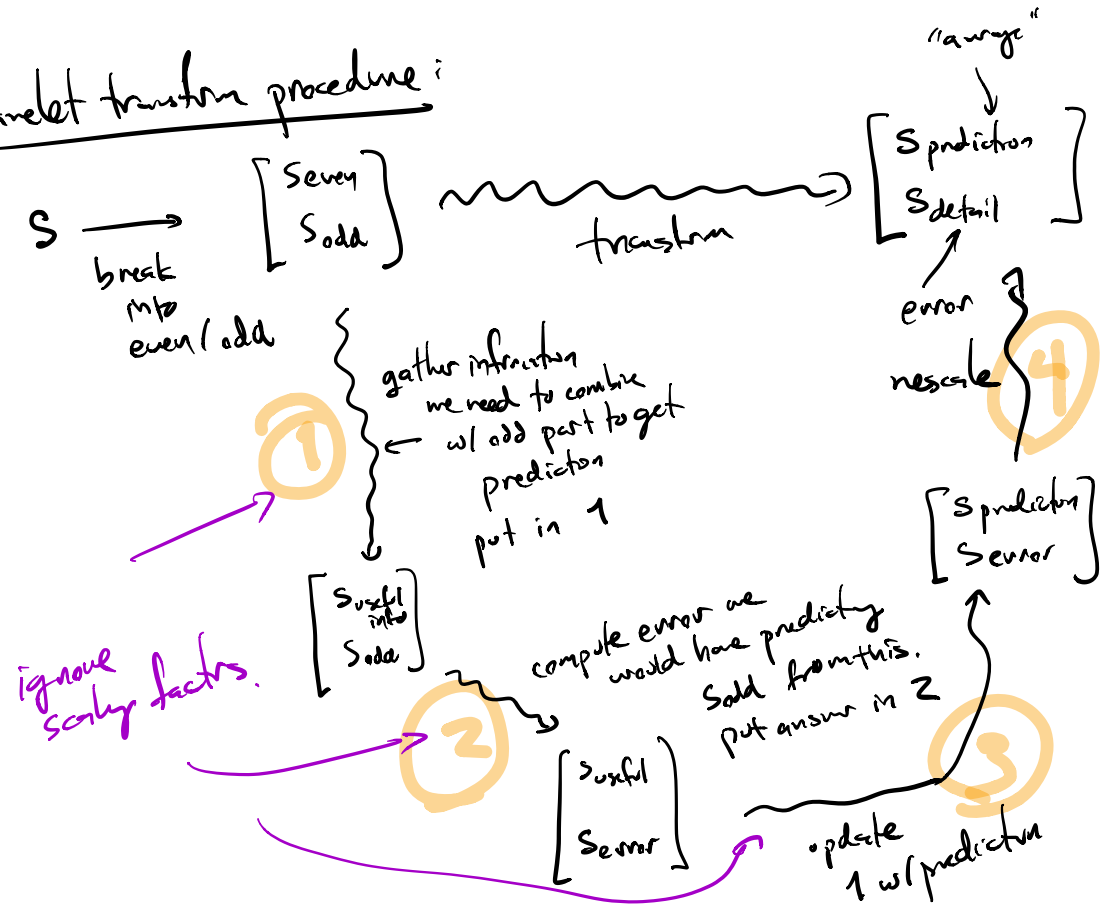 avelet transform procedure:
"average"
S
break
into
even/odd
Seven
Sodd
transform
Sprediction
Sdetail
error
rescale
4
1
gather information
we need to combine
w/ odd part to get
prediction
put in 1
Suseful
info
Sodd
ignore
scaling factors.
2
compute error we
would have predicting
Sodd from this.
put answer in 2
Suseful
Serror
3
update
1 w/ prediction
Sprediction
Serror